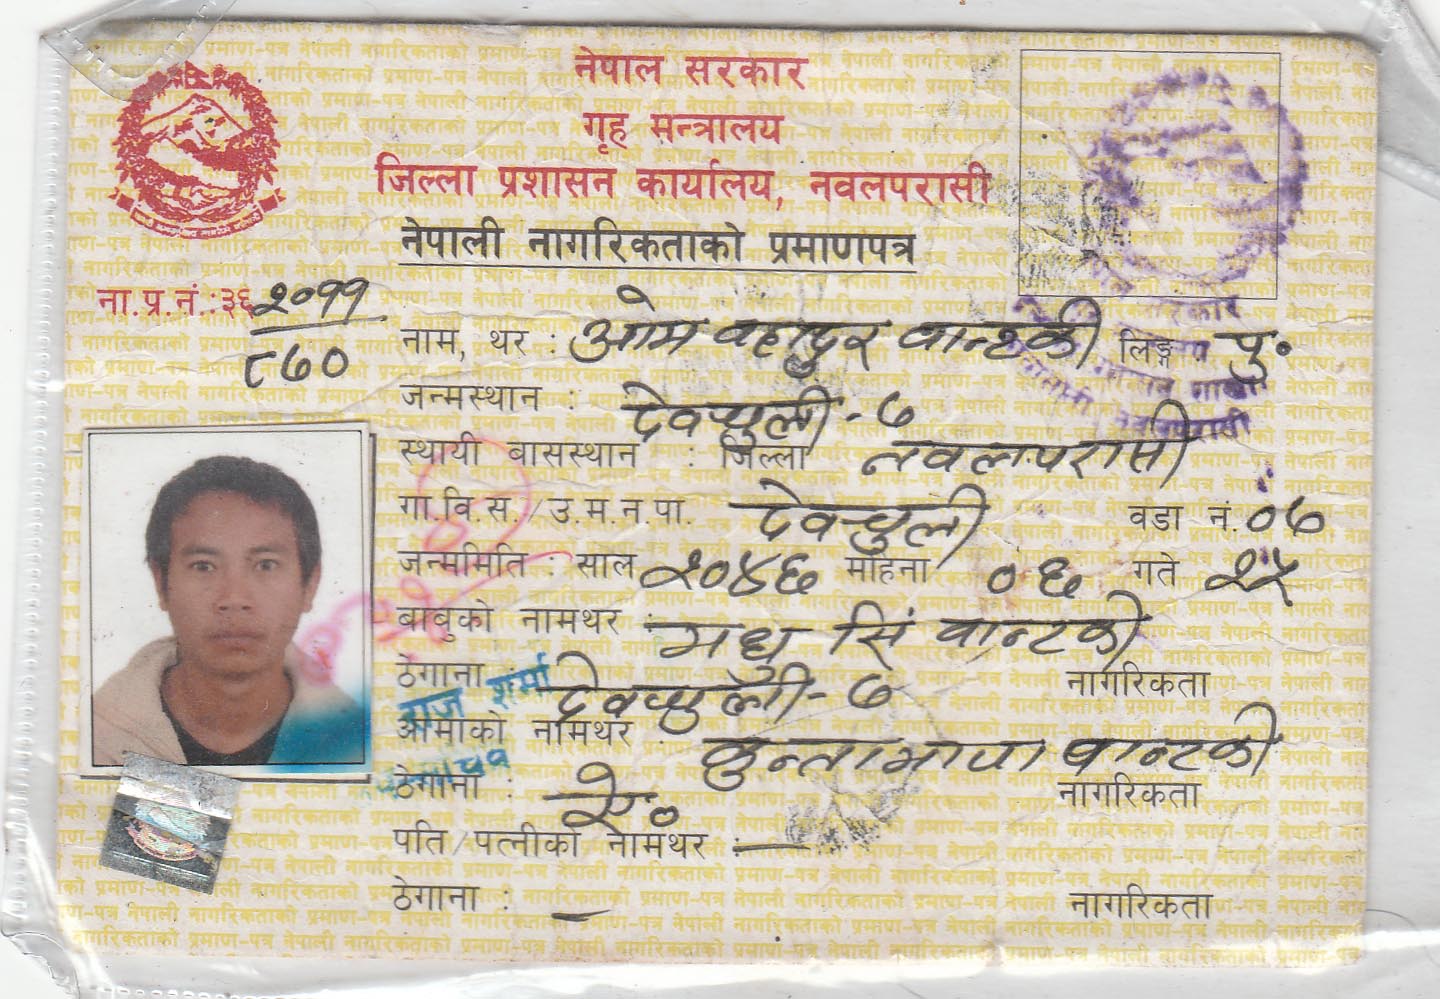 नेपाल सरकार
गृह मन्त्रालय
जिल्ला प्रशासन कार्यालय, नवलपरासी
नेपाली नागरिकताको प्रमाणपत्र
ना.प्र.नं.:३६ २०११
८७०
नाम, थर : ओम वहादुर वान्टकी लिङ्ग पु.
जन्मस्थान : देवचुली-७
स्थायी बासस्थान : जिल्ला नवलपरासी
गा.वि.स./उ.म.न.पा. देवचुली वडा नं. ०७
जन्ममिति : साल २०४६ महिना ०६ गते २५
बाबुको नामथर : मधु सिं वान्टकी
ठेगाना : देवचुली-७ नागरिकता
राज शर्मा
आमाको नामथर : कुन्तामाया वान्टकी
ठेगाना : ऐ० नागरिकता
पति/पत्नीको नामथर : —
ठेगाना : — नागरिकता